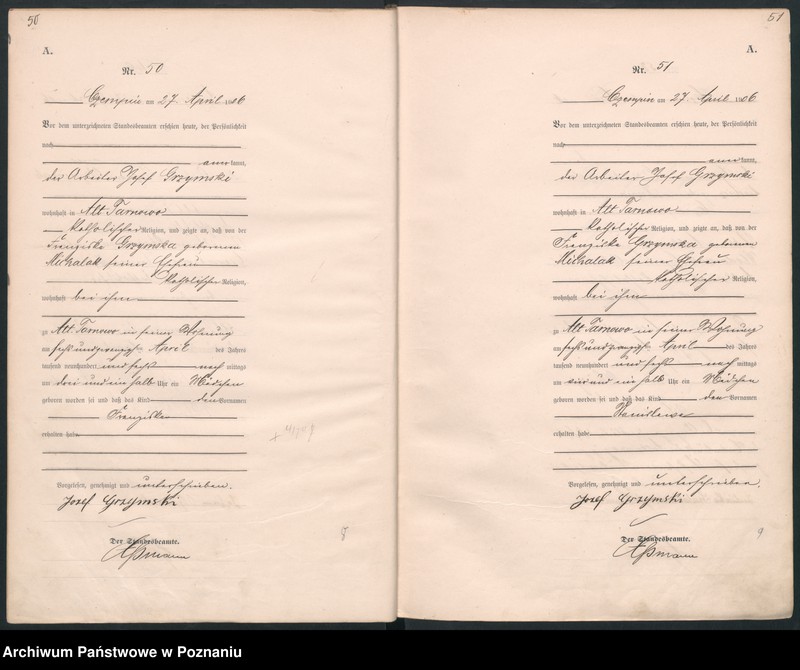 50
A.
Nr. 50
Czempin am 27. April 1906
Vor dem unterzeichneten Standesbeamten erschien heute, der Persönlichkeit
nach
kannt,
der Arbeiter Josef Grzymski
wohnhaft in Alt Tarnowo
katholischer Religion, und zeigte an, daß von der
Franziska Grzymska geborenen
Michalak seiner Ehefrau
katholischer Religion,
wohnhaft bei ihm
zu Alt Tarnowo in seiner Wohnung
am sechsundzwanzigsten April des Jahres
tausend neunhundert und sechs nach mittags
um drei und ein halb Uhr ein Mädchen
geboren worden sei und daß das Kind den Vornamen
Franziska
erhalten habe
Vorgelesen, genehmigt und unterschrieben.
Josef Grzymski
Der Standesbeamte.
8
51
A.
Nr. 51
Czempin am 27. April 1906
Vor dem unterzeichneten Standesbeamten erschien heute, der Persönlichkeit
nach
kannt,
der Arbeiter Josef Grzymski
wohnhaft in Alt Tarnowo
katholischer Religion, und zeigte an, daß von der
Franziska Grzymska geborenen
Michalak seiner Ehefrau
katholischer Religion,
wohnhaft bei ihm
zu Alt Tarnowo in seiner Wohnung
am sechsundzwanzigsten April des Jahres
tausend neunhundert und sechs nach mittags
um vier und ein halb Uhr ein Mädchen
geboren worden sei und daß das Kind den Vornamen
Stanislawa
erhalten habe
Vorgelesen, genehmigt und unterschrieben.
Josef Grzymski
Der Standesbeamte.
9
Archiwum Państwowe w Poznaniu